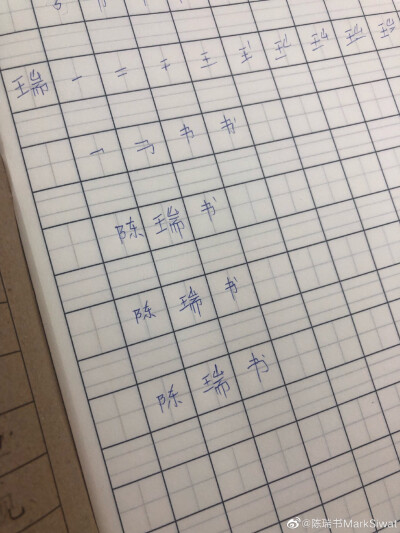 瑞 一 二 干 王
一 马 书 书
陈 瑞 书
陈 瑞 书
陈 瑞 书
@陈瑞书MarkSiwat